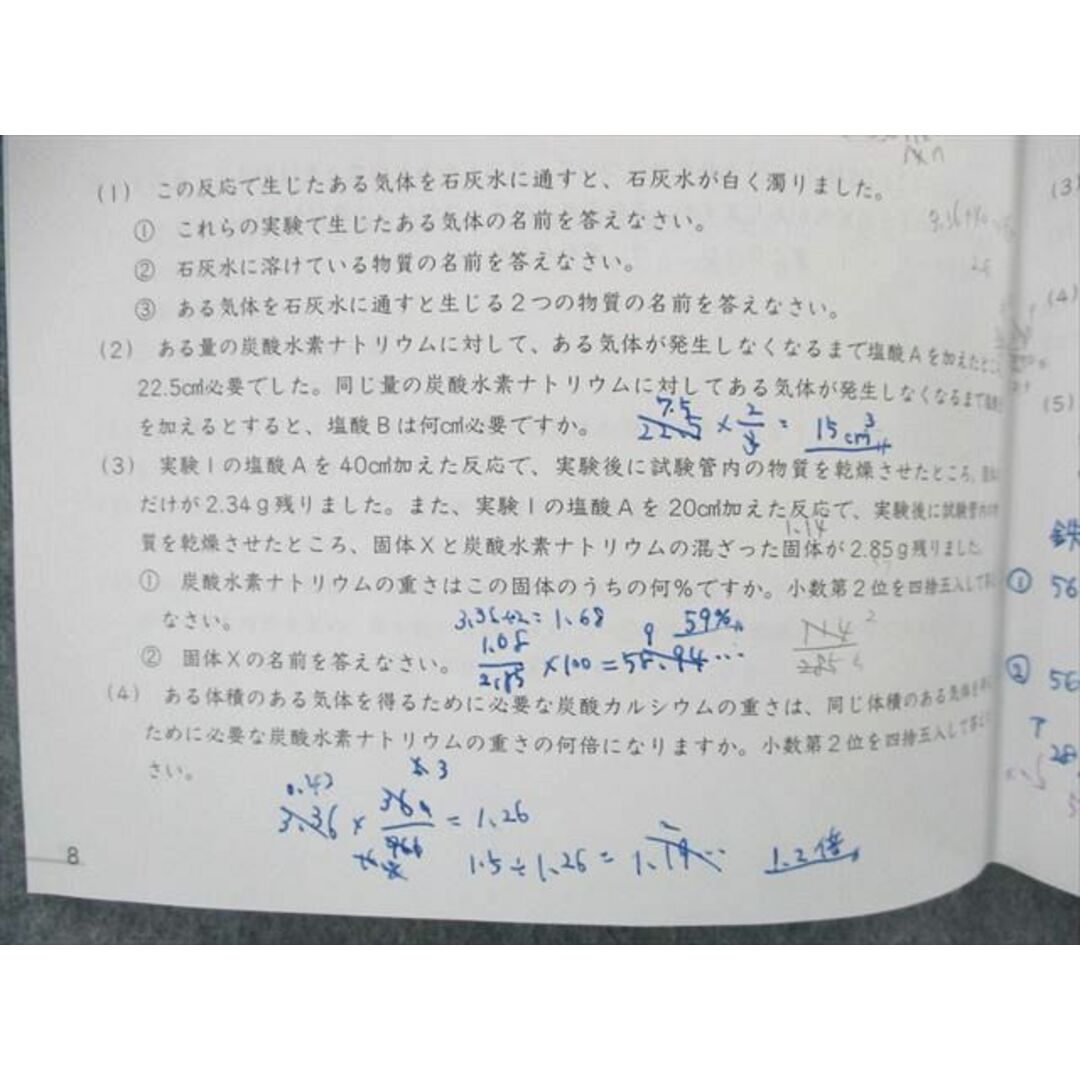 (1) この反応で生じたある気体を石灰水に通すと、石灰水が白く濁りました。
① これらの実験で生じたある気体の名前を答えなさい。
② 石灰水に溶けている物質の名前を答えなさい。
③ ある気体を石灰水に通すと生じる2つの物質の名前を答えなさい。
(2) ある量の炭酸水素ナトリウムに対して、ある気体が発生しなくなるまで塩酸Aを加えたところ
22.5㎤必要でした。同じ量の炭酸水素ナトリウムに対してある気体が発生しなくなるまで
を加えるとすると、塩酸Bは何㎤必要ですか。
7.5
22.5 × 2/3 = 15cm³
(3) 実験Ⅰの塩酸Aを40㎤加えた反応で、実験後に試験管内の物質を乾燥させたところ、
だけが2.34g残りました。また、実験Ⅰの塩酸Aを20㎤加えた反応で、実験後に試験管内の
1.14
質を乾燥させたところ、固体Xと炭酸水素ナトリウムの混ざった固体が2.85g残りました
① 炭酸水素ナトリウムの重さはこの固体のうちの何%ですか。小数第2位を四捨五入して
なさい。
3.36÷2=1.68
59%
② 固体Xの名前を答えなさい。
1.68/2.85 ×100=58.94…
9
(4) ある体積のある気体を得るために必要な炭酸カルシウムの重さは、同じ体積のある気体を
ために必要な炭酸水素ナトリウムの重さの何倍になりますか。小数第2位を四捨五入して
さい。
0.42
3
3.36 × 360/960 = 1.26
1.5÷1.26=1.19…
1.2倍
8
(3
(4)
(5)
鉄
① 56
② 56
28